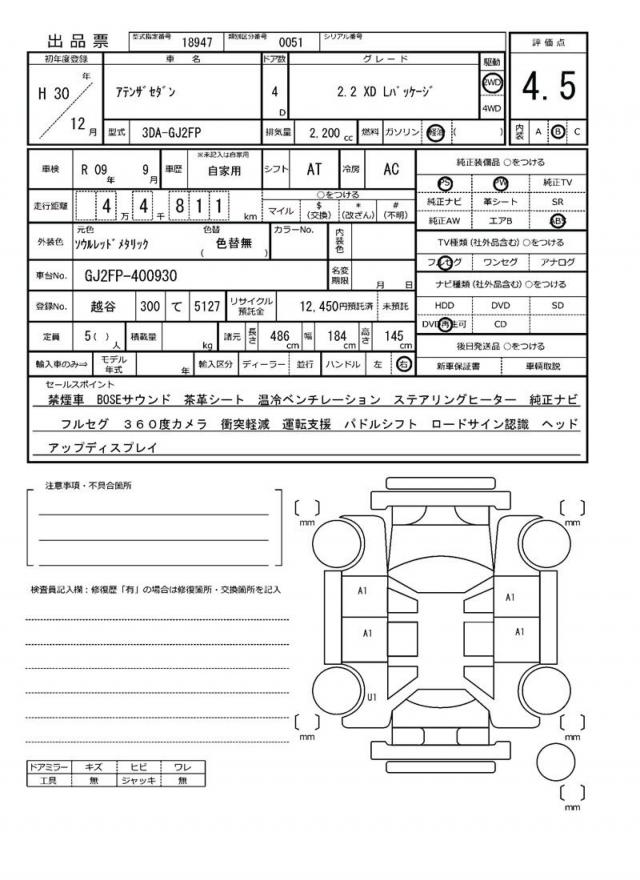 出品票 型式指定番号 18947 類別区分番号 0051 シリアル番号
初年度登録 車 名 ドア数 グレード 駆動 評価点
H 30 年 12 月 ｱﾃﾝｻﾞｾﾀﾞﾝ 4 D 2.2 XD Lﾊﾟｯｹｰｼﾞ 2WD 4WD 4.5
型式 3DA-GJ2FP 排気量 2,200 cc 燃料 ガソリン 軽油 ( ) 内装 A B C
車検 R 09 年 9 月 車歴 ※未記入は自家用 自家用 シフト AT 冷房 AC
走行距離 4 万 4 千 8 1 1 km ○をつける
マイル $ (交換) * (改ざん) # (不明)
外装色 元色 ｿｳﾙﾚｯﾄﾞﾒﾀﾘｯｸ 色替 ( 色替無 ) カラーNo. 内装色
車台No. GJ2FP-400930 名変期限 月 日
登録No. 越谷 300 て 5127 リサイクル預託金 12,450円預託済 未預託
定員 5( ) 人 積載量 kg 諸元 長さ 486 cm 幅 184 cm 高さ 145 cm
輸入車のみ⇒ モデル年式 年 輸入区分 ディーラー 並行 ハンドル 左 右
純正装備品 ○をつける
PS PW 純正TV
純正ナビ 革シート SR
純正AW エアB ABS
TV種類(社外品含む)○をつける
フルセグ ワンセグ アナログ
ナビ種類(社外品含む)○をつける
HDD DVD SD
DVD再生可 CD
後日発送品 ○をつける
新車保証書 車輌取説
セールスポイント
禁煙車 BOSEサウンド 茶革シート 温冷ベンチレーション ステアリングヒーター 純正ナビ
フルセグ 360度カメラ 衝突軽減 運転支援 パドルシフト ロードサイン認識 ヘッド
アップディスプレイ
注意事項・不具合箇所
検査員記入欄：修復歴「有」の場合は修復箇所・交換箇所を記入
mm mm
A1 A1
A1 A1
U1
mm mm
mm
ドアミラー キズ ヒビ ワレ
工具 無 ジャッキ 無